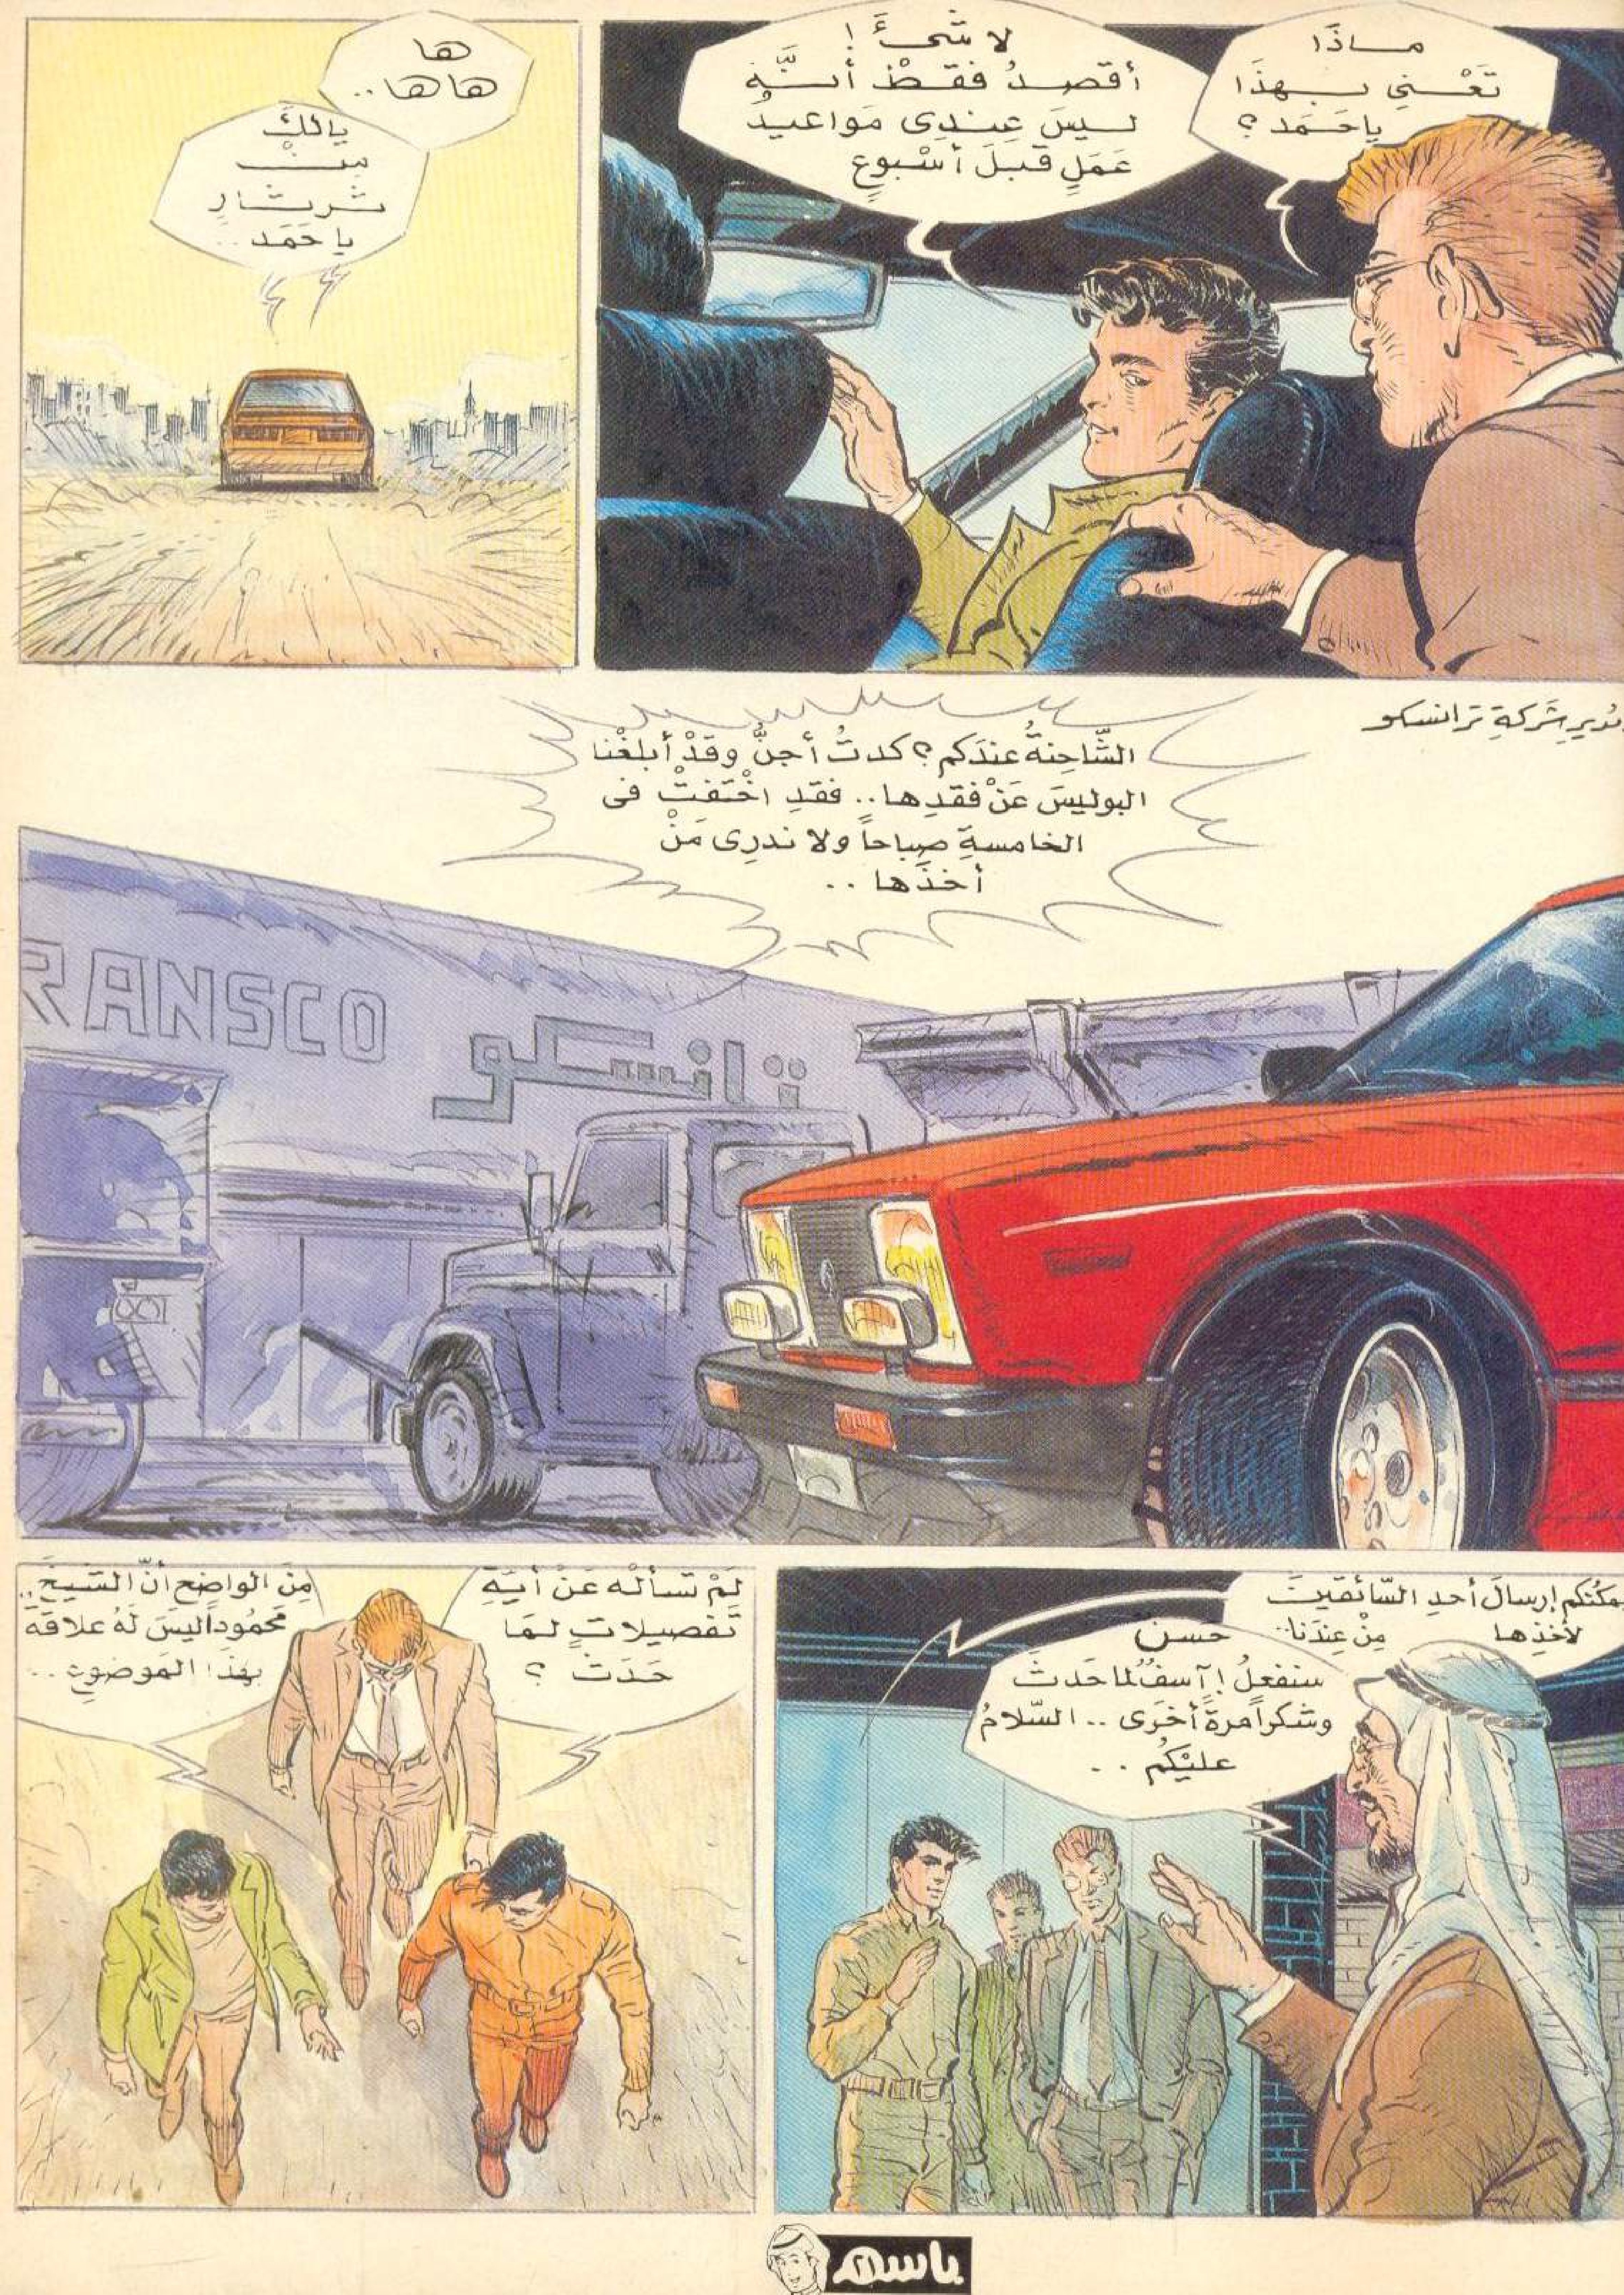 ماذَا
تَعْني بهذَا
ياحَمَد؟
لا شَيءَ!
أقصدُ فقطْ أنَّه
ليسَ عِندِى مَواعيدُ
عَمَلٍ قبلَ أسْبوعٍ
ها
هاها..
يالكَ
مِنْ
ثرثارٍ
ياحَمَد..
مُديرِ شَركةِ ترانسكو
الشَّاحِنةُ عندَكم؟ كدتُ أجنُّ وقدْ أبلغْنا
البوليسَ عَنْ فقدِها.. فقدِ اخْتفتْ فى
الخامسةِ صباحاً ولا ندرِى مَنْ
أخذَها..
RANSCO
ترانسكو
يمكنُكم إرسالَ أحدِ السَّائقينَ
لأخذِها مِنْ عِندَنا..
حسن
سنفعلُ! آسفٌ لما حَدثَ
وشكراً مرةً أخرَى.. السَّلامُ
عليْكُم..
لمْ تسألْه عَنْ أيَةِ
تَفصيلاتٍ لمَا
حَدَثَ؟
مِنَ الواضِحِ أنَّ الشيخَ..
مَحْمُوداً ليسَ لهُ علاقةٌ
بهَذا المَوضوعِ..
باسم